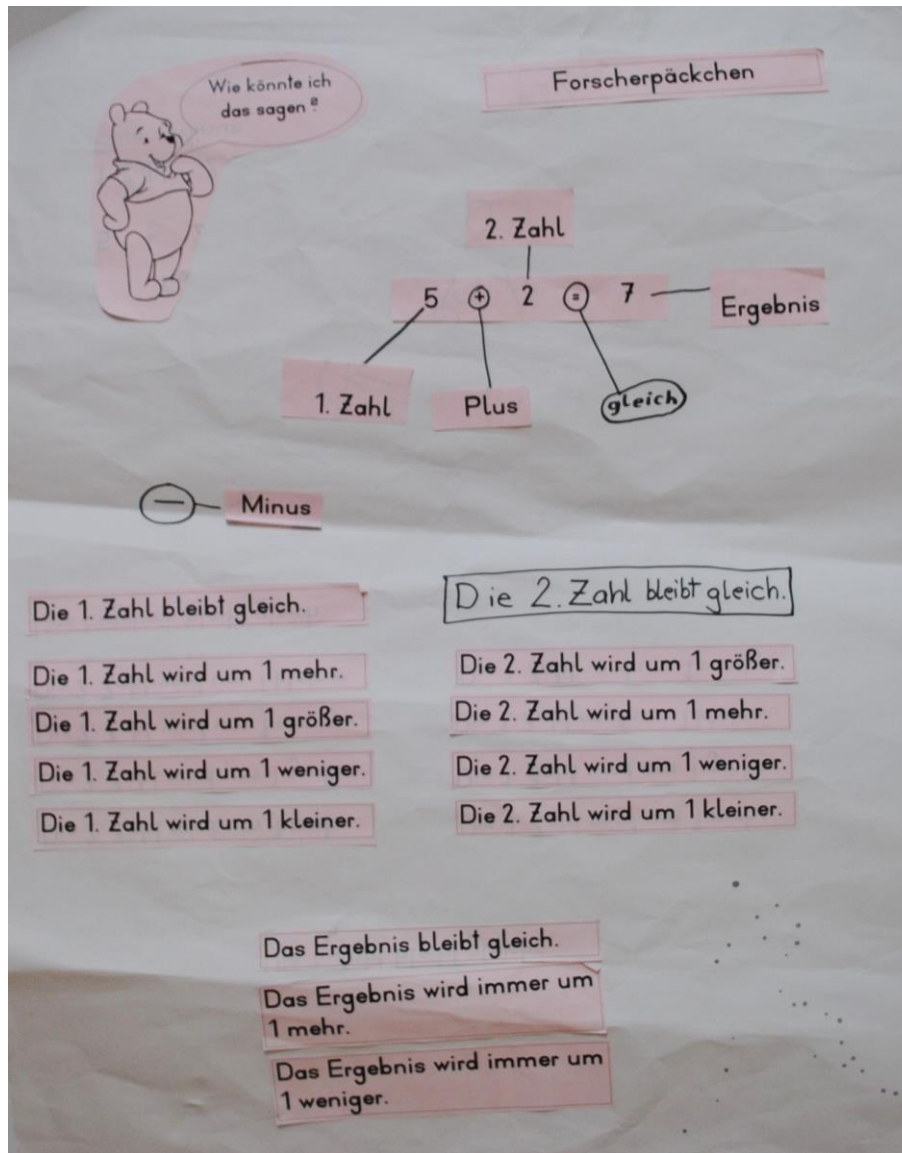 Wie könnte ich
das sagen?
Forscherpäckchen
2. Zahl
5 + 2 = 7
Ergebnis
1. Zahl
Plus
gleich
– Minus
Die 1. Zahl bleibt gleich.
Die 1. Zahl wird um 1 mehr.
Die 1. Zahl wird um 1 größer.
Die 1. Zahl wird um 1 weniger.
Die 1. Zahl wird um 1 kleiner.
Die 2. Zahl bleibt gleich.
Die 2. Zahl wird um 1 größer.
Die 2. Zahl wird um 1 mehr.
Die 2. Zahl wird um 1 weniger.
Die 2. Zahl wird um 1 kleiner.
Das Ergebnis bleibt gleich.
Das Ergebnis wird immer um
1 mehr.
Das Ergebnis wird immer um
1 weniger.